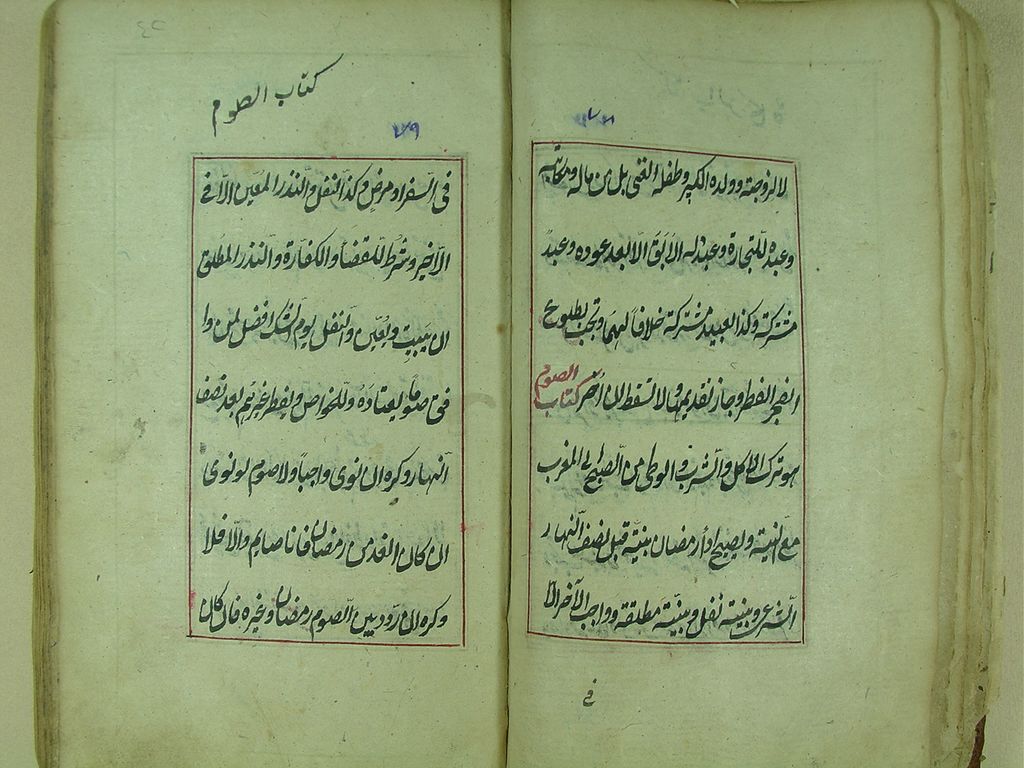 لا لزوجته وولده الكبير وطفله الغني بل من ماله ومكاتبه
وعبده للتجارة وعبد له الآبق الا بعد عوده وعبد
مشتركة وكذا العبيد مشتركة خلافا لهما وتجب بطلوع
الفجر الفطر وجاز تقديمها ولا تسقط ان اخر كتاب الصوم
هو ترك الاكل والشرب والوطى من الصبح الى المغرب
مع النية ويصح اداء رمضان بنية قبل نصف النهار
الشرعي وبنية نفل وبنية مطلقة وواجب الآخر الا
في
كتاب الصوم
٧٩
فى السفر او مرض وكذا النفل والنذر المعين الا فى
الاخير وشرط للقضا والكفارة والنذر المطلق
ان يبيت ويعين والنفل يوم الشك افضل لمن وا
فق صوما يعتاده وللخواص ويفطر غيرهم بعد نصف
النهار وكره ان نوى واجبا ولا صوم لو نوى
ان كان الغد من رمضان فانا صايم والا فلا
وكره ان ردد بين الصوم رمضان وغيره فان كان